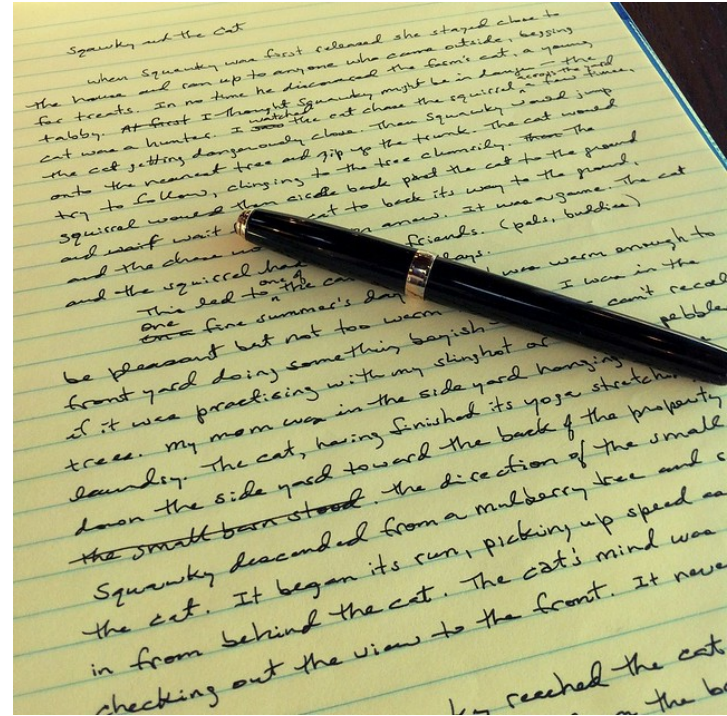 Squawky and the Cat
When Squawky was first released she stayed close to
the house and ran up to anyone who came outside, begging
for treats. In no time he discovered the farm's cat, a young
tabby. At first I thought Squawky might be in danger — the
cat was a hunter. I saw watched the cat chase the squirrel across the yard a few times,
the cat getting dangerously close. Then Squawky would jump
onto the nearest tree and zip up the trunk. The cat would
try to follow, clinging to the tree clumsily. The
squirrel would then circle back past the cat to the ground
and wait cat to back its way to the ground,
and the chase anew. It was a game. The cat
and the squirrel had friends. (pals, buddies)
This led to one of the days.
one fine summer's day was warm enough to
be pleasant but not too warm I was in the
front yard doing something boyish can't recall
if it was practising with my slingshot or pebble
trees. My mom was in the side yard hanging
laundry. The cat, having finished its yoga stretch
down the side yard toward the back of the property
the small barn stood. the direction of the small
Squawky descended from a mulberry tree and s
the cat. It began its run, picking up speed as
in from behind the cat. The cat's mind was
checking out the view to the front. It neve
ky reached the cat
on the ba